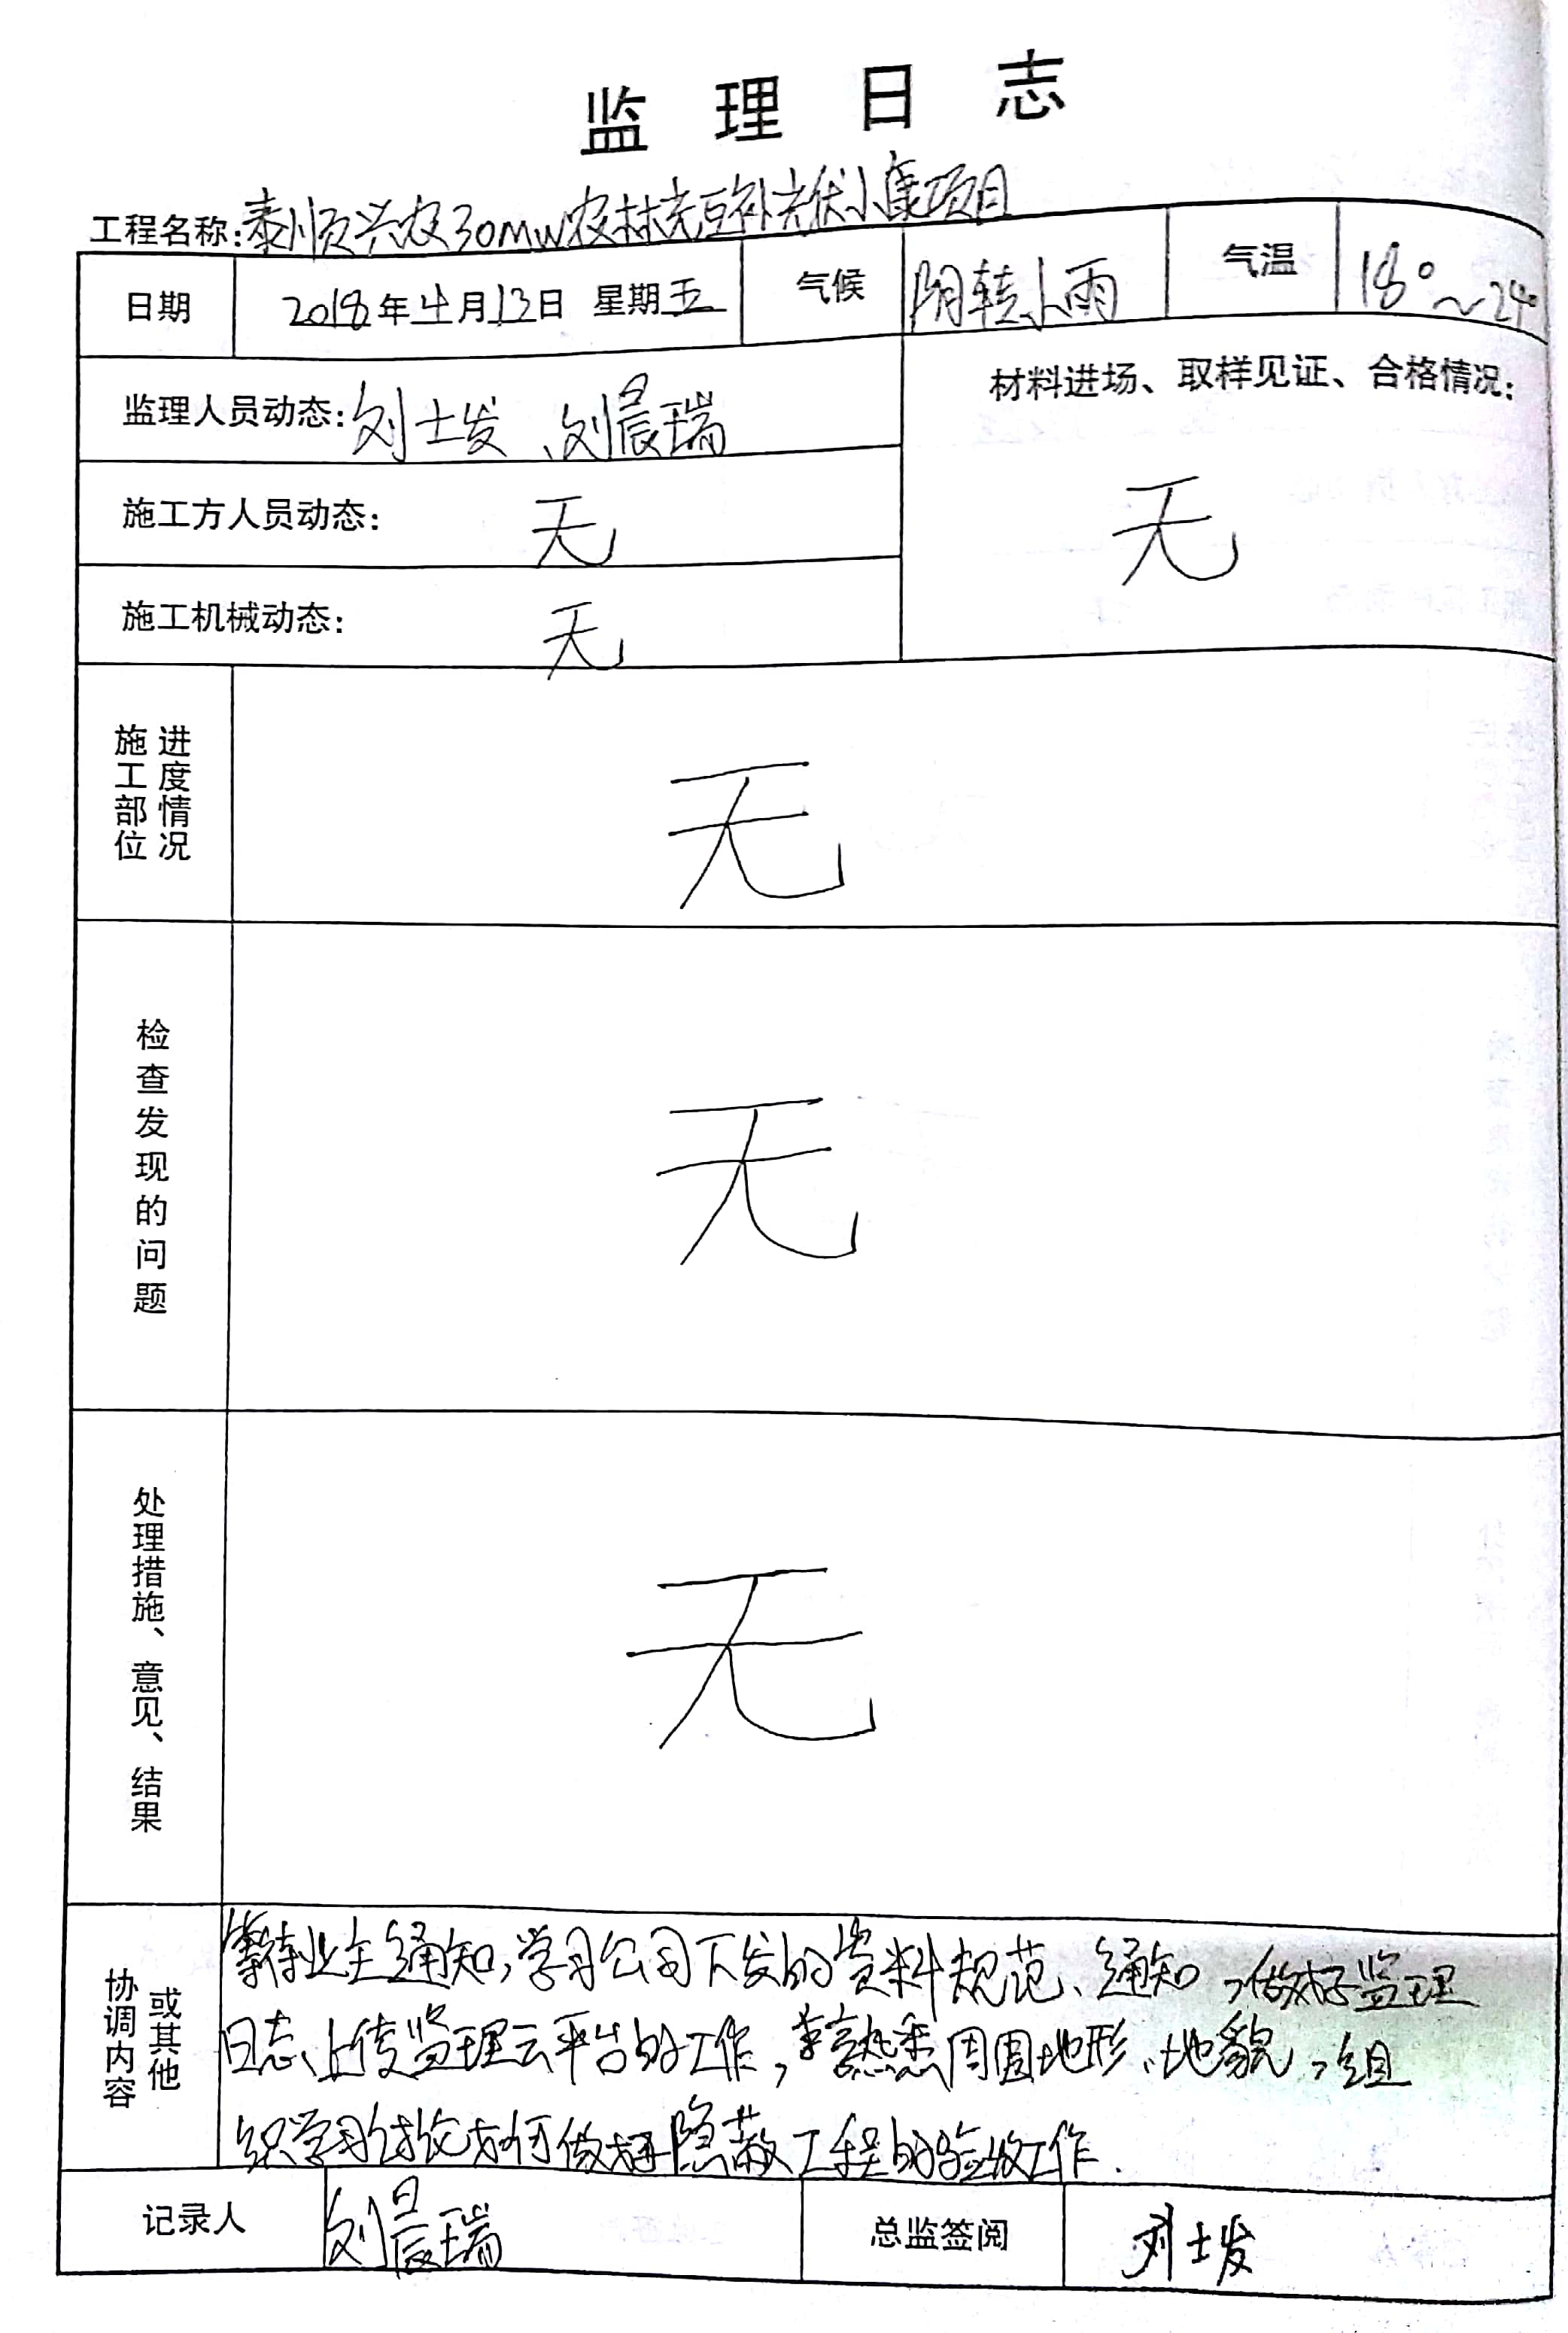 监理日志
工程名称:泰顺兴农30MW农林光互补光伏小康项目
日期 2018年4月13日 星期五 气候 阴转小雨 气温 18°~24°
监理人员动态:刘士发、刘晨瑞
材料进场、取样见证、合格情况:
无
施工方人员动态: 无
施工机械动态: 无
施工部位 进度情况 无
检查发现的问题 无
处理措施、意见、结果 无
协调内容 或其他
等待业主通知,学习公司下发的资料规范、通知,做好监理
日志、上传监理云平台的工作,熟悉周围地形、地貌,组
织学习讨论如何做好隐蔽工程的验收工作.
记录人 刘晨瑞 总监签阅 刘士发